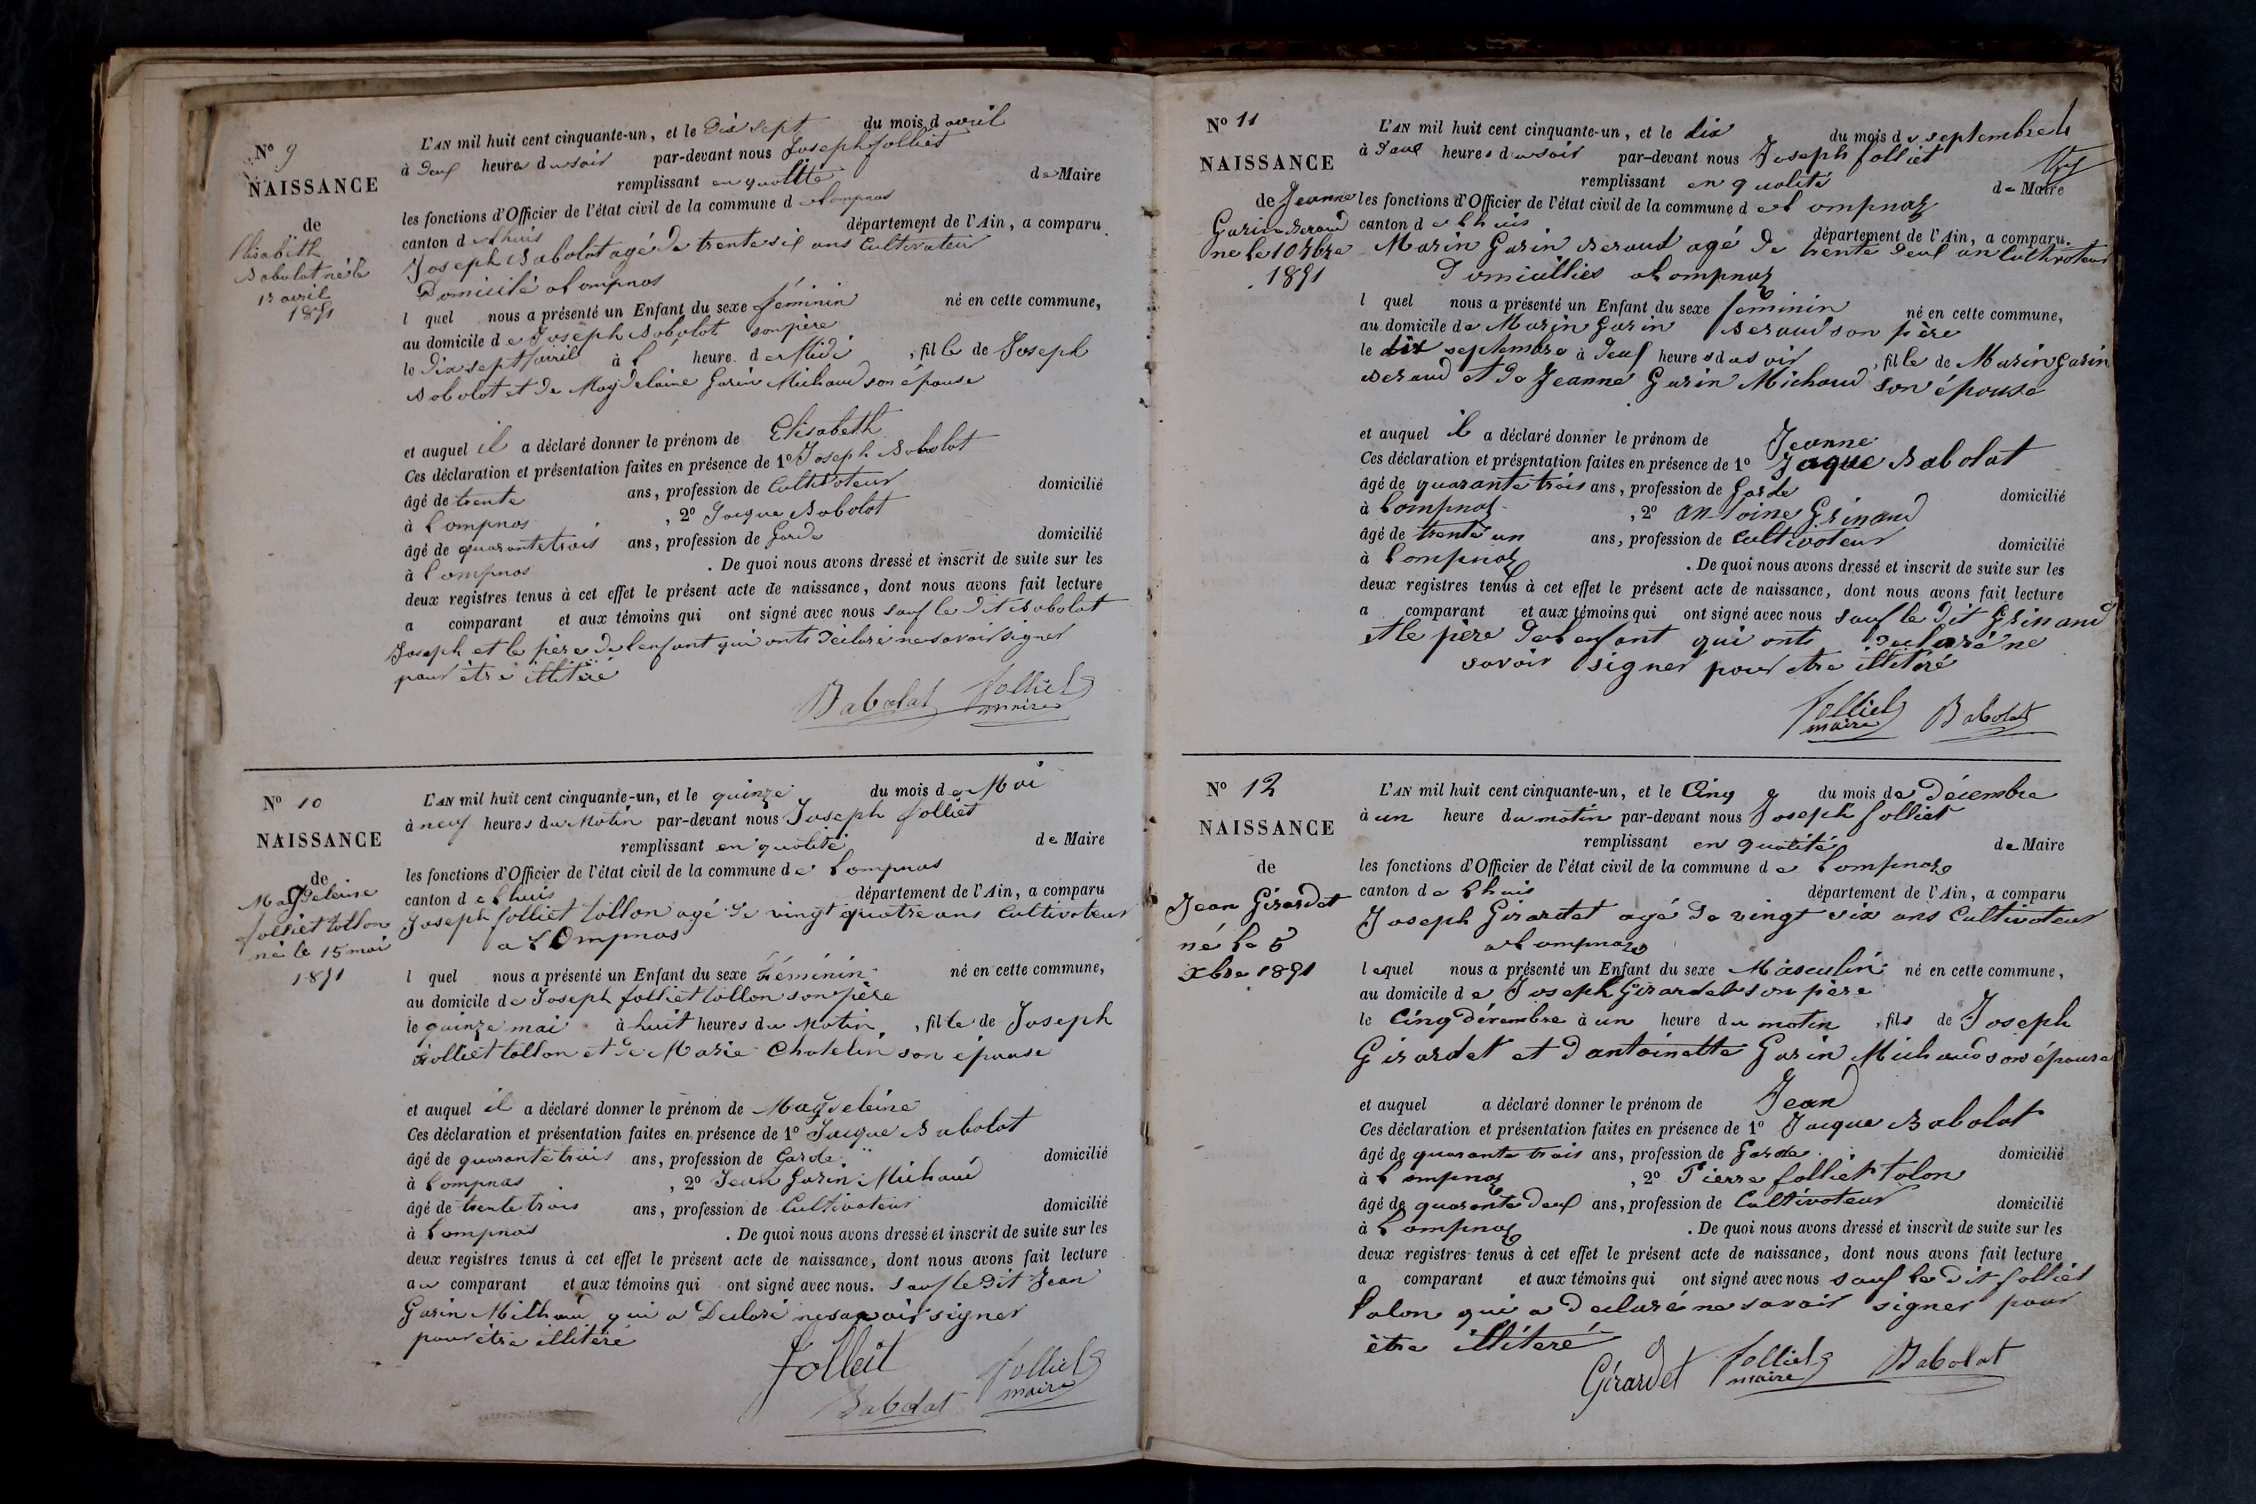 N° 9
NAISSANCE
de
Elisabeth
Babolat né le
17 avril
1851
L'AN mil huit cent cinquante-un, et le dix sept du mois d avril
à deux heures du soir par-devant nous Joseph folliet
remplissant en qualité de Maire
les fonctions d'Officier de l'état civil de la commune de Lompnas
canton de Lhuis département de l'Ain, a comparu
Joseph Babolat agé de trente six ans Cultivateur
Domicilié a Lompnas
l quel nous a présenté un Enfant du sexe féminin né en cette commune,
au domicile de Joseph Babolat son père
le dix sept avril à l heure de Midi, fille de Joseph
Babolat et de Magdelaine Garin Michaud son épouse
et auquel il a déclaré donner le prénom de Elisabeth
Ces déclaration et présentation faites en présence de 1° Joseph Babolat
âgé de trente ans, profession de Cultivateur domicilié
à Lompnas, 2° Jacque Babolat
âgé de quarante trois ans, profession de Garde domicilié
à Lompnas. De quoi nous avons dressé et inscrit de suite sur les
deux registres tenus à cet effet le présent acte de naissance, dont nous avons fait lecture
a comparant et aux témoins qui ont signé avec nous sauf le dit Babolat
Joseph et le père de l'enfant qui onts déclaré ne savoir signer
pour être illitéré
Babolat folliet
maire
N° 10
NAISSANCE
de
Magdeleine
folliet tollon
né le 15 mai
1851
L'AN mil huit cent cinquante-un, et le quinze du mois de Mai
à neuf heures du Matin par-devant nous Joseph folliet
remplissant en qualité de Maire
les fonctions d'Officier de l'état civil de la commune de Lompnas
canton de Lhuis département de l'Ain, a comparu
Joseph folliet tollon agé de vingt quatre ans Cultivateur
a LOmpnas
l quel nous a présenté un Enfant du sexe féminin né en cette commune,
au domicile de Joseph folliet tollon son père
le quinze mai à huit heures du Matin, fille de Joseph
folliet tollon et de Marie Chatelin son épouse
et auquel il a déclaré donner le prénom de Magdeleine
Ces déclaration et présentation faites en présence de 1° Jacque Babolat
âgé de quarante trois ans, profession de Garde domicilié
à Lompnas, 2° Jean Garin Michaud
âgé de trente trois ans, profession de Cultivateur domicilié
à Lompnas. De quoi nous avons dressé et inscrit de suite sur les
deux registres tenus à cet effet le présent acte de naissance, dont nous avons fait lecture
au comparant et aux témoins qui ont signé avec nous. Sauf le dit Jean
Garin Milhaud qui a Declaré ne savoir signer
pour être illitéré
folleit
folliet
maire
Babolat
N° 11
NAISSANCE
de Jeanne
Garin Beraud
ne le 10 7bre
1851
L'AN mil huit cent cinquante-un, et le dix du mois de septembre
à deux heures du soir par-devant nous Joseph folliet
remplissant en qualité de Maire
les fonctions d'Officier de l'état civil de la commune de Lompnaz
canton de Lhuis département de l'Ain, a comparu.
Marin Garin Beraud agé de trente deux an Cultivateur
Domicilliés a Lompnaz
l quel nous a présenté un Enfant du sexe feminin né en cette commune,
au domicile de Marin Garin Beraud son père
le dix septembre à deux heures du soir, fille de Marin Garin
Beraud et de Jeanne Garin Michaud son épouse
et auquel il a déclaré donner le prénom de Jeanne
Ces déclaration et présentation faites en présence de 1° Jaque Babolat
âgé de quarante trois ans, profession de Garde domicilié
à Lompnaz, 2° antoine Grinand
âgé de trente un ans, profession de Cultivateur domicilié
à Lompnaz. De quoi nous avons dressé et inscrit de suite sur les
deux registres tenus à cet effet le présent acte de naissance, dont nous avons fait lecture
a comparant et aux témoins qui ont signé avec nous sauf le dit Grinand
et le père de l'enfant qui onts déclaré ne
savoir signer pour etre illitéré
folliet Babolat
maire
N° 12
NAISSANCE
de
Jean Girardet
né le 5
xbre 1851
L'AN mil huit cent cinquante-un, et le Cinq du mois de décembre
à un heure du matin par-devant nous Joseph folliet
remplissant en qualité de Maire
les fonctions d'Officier de l'état civil de la commune de Lompnaz
canton de Lhuis département de l'Ain, a comparu
Joseph Girardet agé de vingt six ans Cultivateur
a Lompnaz
lequel nous a présenté un Enfant du sexe Masculin né en cette commune,
au domicile de Joseph Girardet son père
le Cinq décembre à un heure du matin, fils de Joseph
Girardet et d'antoinette Garin Michaud son épouse
et auquel a déclaré donner le prénom de Jean
Ces déclaration et présentation faites en présence de 1° Jacque Babolat
âgé de quarante trois ans, profession de Garde domicilié
à Lompnaz, 2° Pierre folliet tolon
âgé de quarante deux ans, profession de Cultivateur domicilié
à Lompnaz. De quoi nous avons dressé et inscrit de suite sur les
deux registres tenus à cet effet le présent acte de naissance, dont nous avons fait lecture
a comparant et aux témoins qui ont signé avec nous sauf le dit folliet
tolon qui a declaré ne savoir signer pour
être illitéré
Girardet folliet Babolat
maire